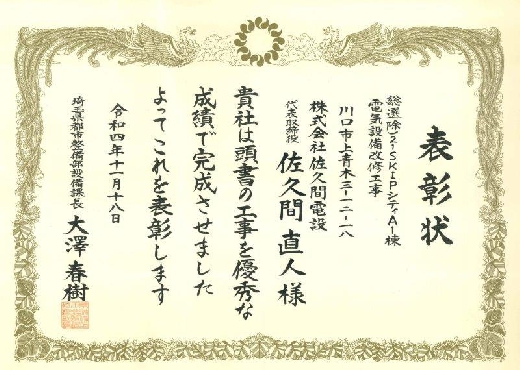 表彰状
総選除521SKIPシティA1棟
電気設備改修工事
川口市上青木三-一二-一八
株式会社佐久間電設
代表取締役 佐久間 直人 様
貴社は頭書の工事を優秀な
成績で完成させました
よってこれを表彰します
令和四年十一月十八日
埼玉県都市整備部設備課長 大澤春樹